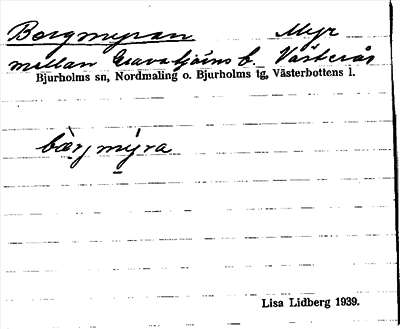 Bergmyran Myr
mellan Gravatjärns b. Västerås
Bjurholms sn, Nordmaling o. Bjurholms tg, Västerbottens l.
bær̀jmýra
Lisa Lidberg 1939.